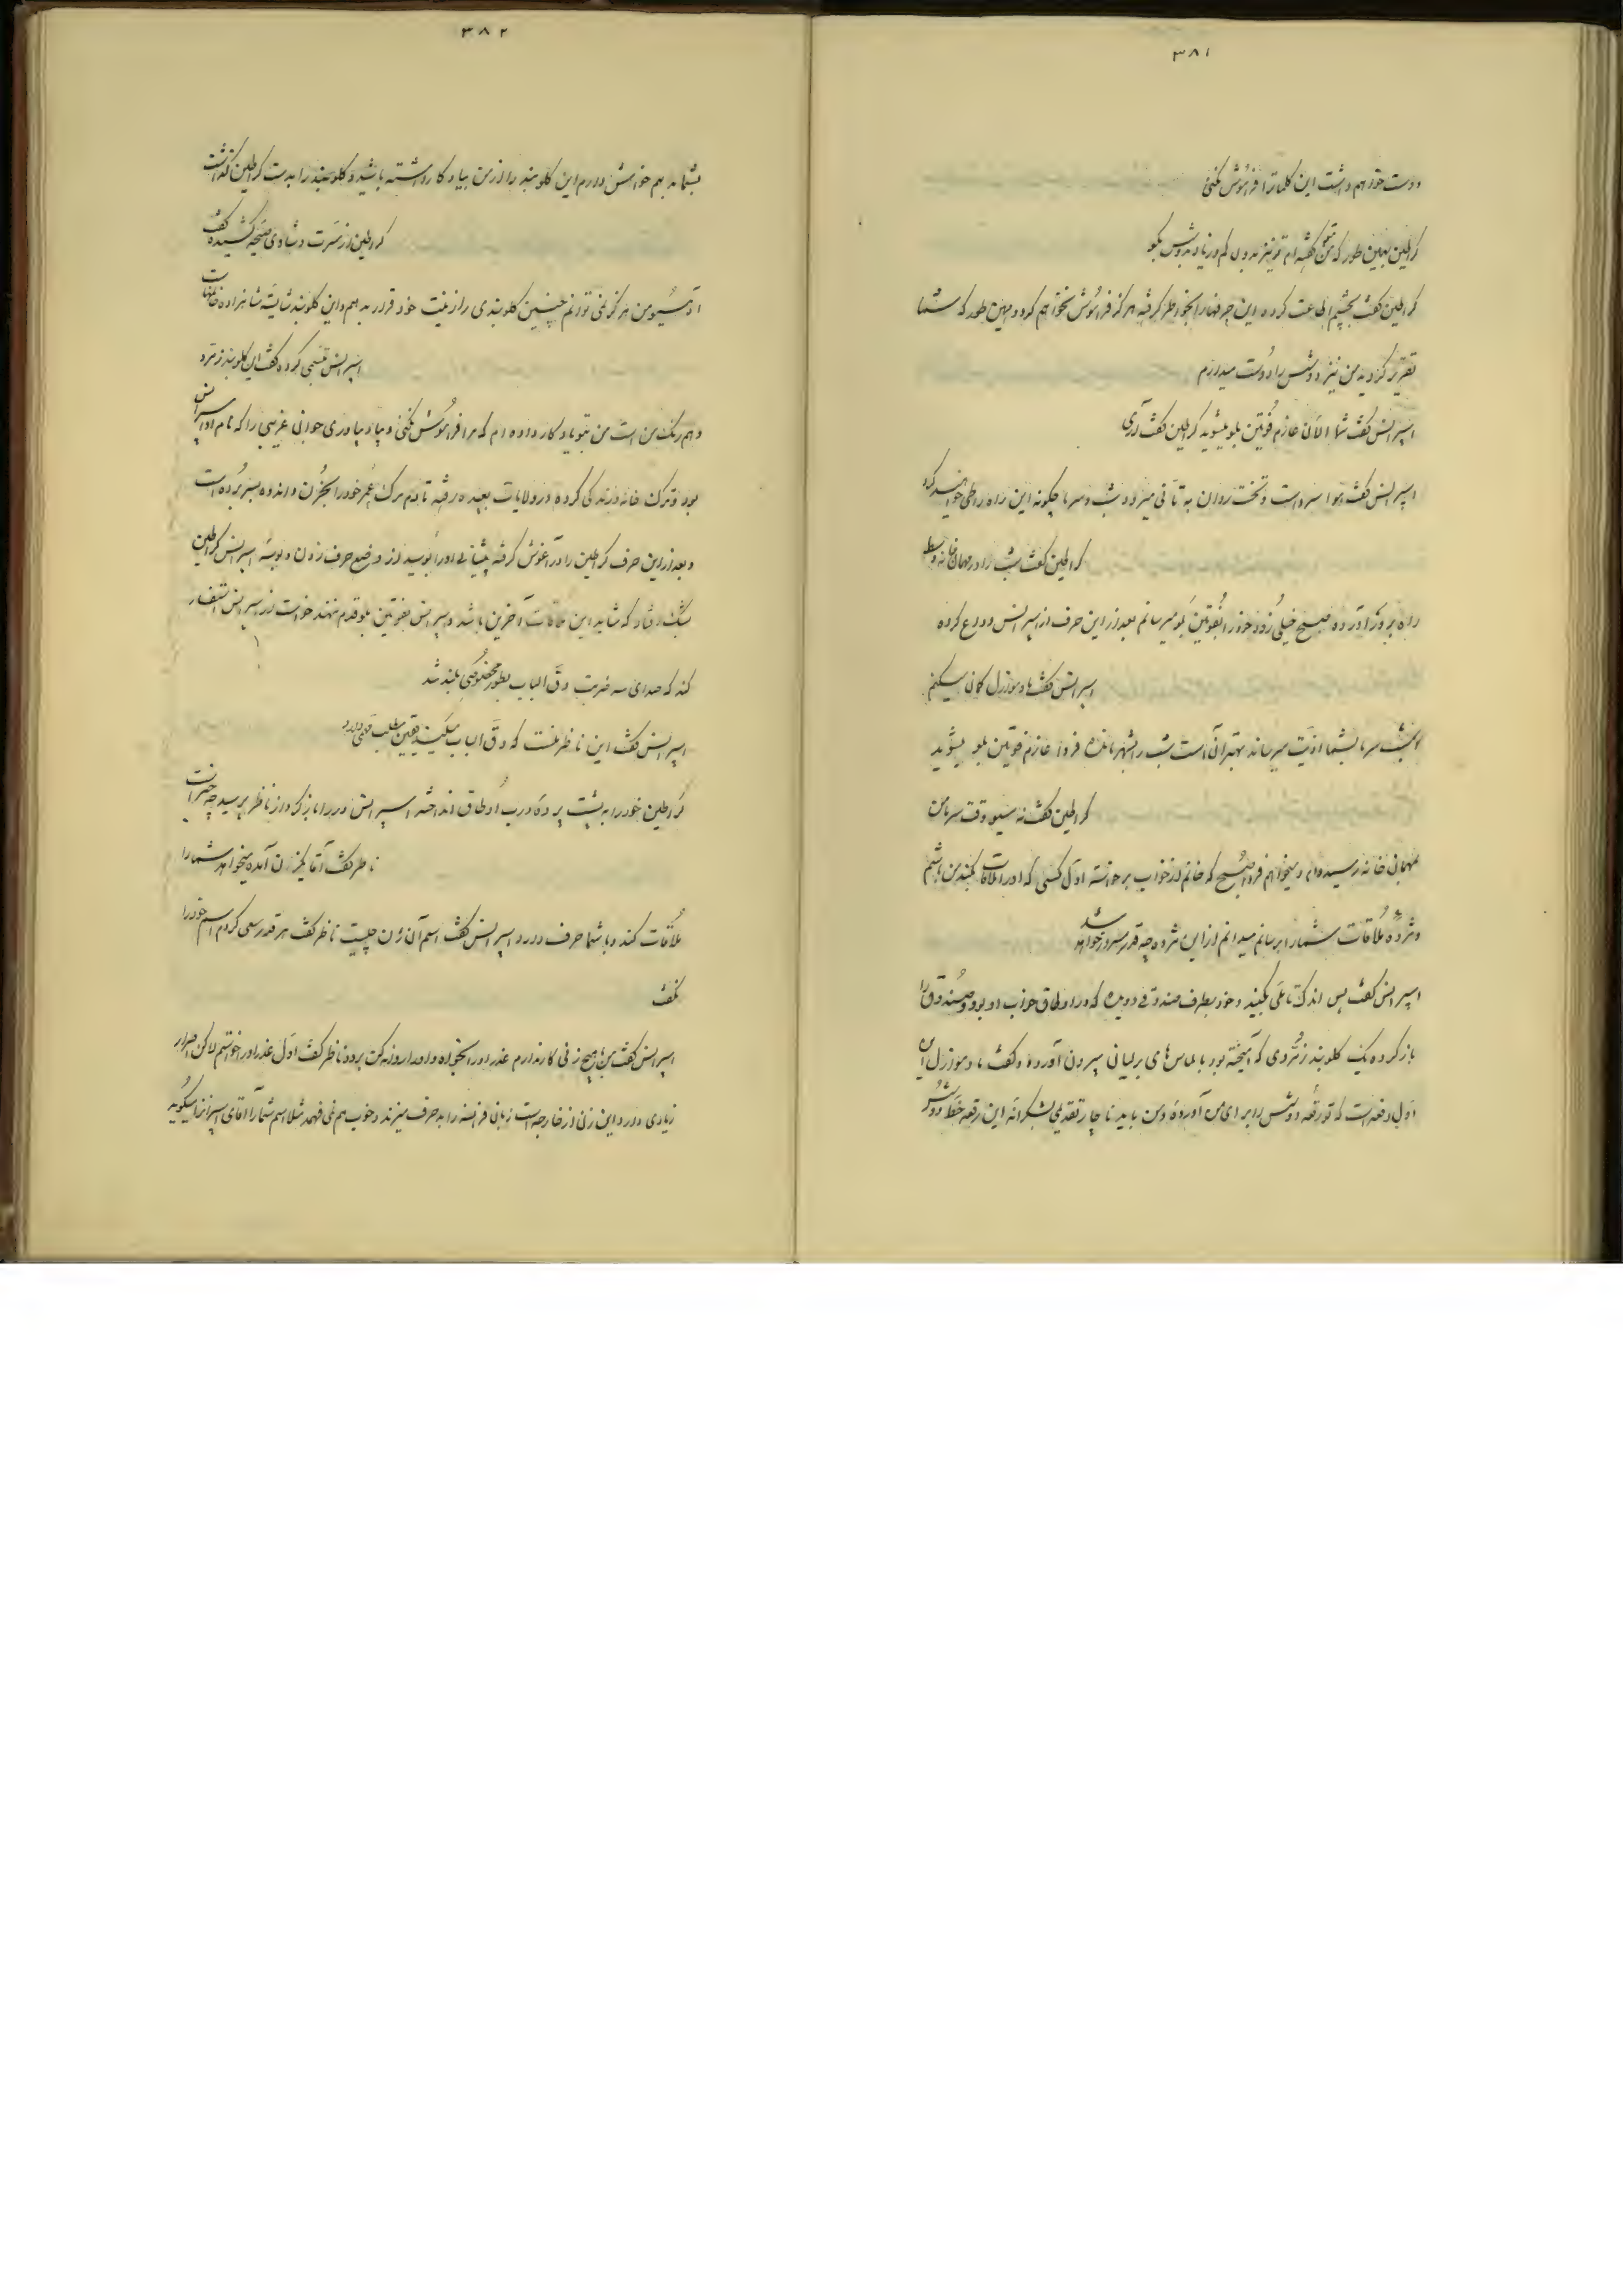 ۳۸۱
دوست خواهم داشت این کلمات را فراموش نکنی
کراطین بهمین طور که من بتو گفته‌ام تو نیز بدون کم و زیاد بدوشس بگو
کراطین گفت بچشم اطاعت کرده این حرفها را بخاطر گرفته هرگز فراموش نخواهم کرد و همین طور که شما
تقریر کردید من نیز دوشس را دوست میدارم
اسپرانس گفت شما الآن عازم فونتین بلو میشوید کراطین گفت آری
اسپرانس گفت هوا سرد است و تخت روان به تأنی میرود شب و سرما چگونه این راه را طی خواهید کرد
کراطین گفت شب را در مهمان خانه وسط
راه بروز آورده صبح خیلی زود خود را بفونتین بلو میرسانم بعد از این حرف از اسپرانس وداع کرده
اسپرانس گفت مادموازل گمان میکنم
امشب سرما بشما اذیت میرساند بهتر آن است شب را بشهر مانده فردا عازم فونتین بلو بشوید
کراطین گفت نه مسیو وقت سر بامن
مهمان خانه رسیده‌ام و میخواهم فردا صبح که خانم از خواب برخاسته اول کسی که او را ملاقات بکند من باشم
و مژدهٔ ملاقات شما را برسانم میدانم از این مژده چه قدر مسرور خواهد شد
اسپرانس گفت پس اندک تأملی بکنید و خود بطرف صندوقی دویده که در اوطاق خواب او بود و صندوق را
باز کرده یک گلوبند زمردی که آمیخته بود بالماس‌های برلیانی بیرون آورده و گفت مادموازل این
اول دفعه است که تو رقعه دوشس را برای من آوردهٔ و من باید ناچار تقدیمی بشکرانهٔ این رقعه خط دوشس
۳۸۲
بشما بدهم خواهش دارم این گلوبند را از من بیادگار داشته باشید و گلوبند را بدست کراطین گذاشت
کراطین از مسرت و شادی صیحه کشیده گفت
آه مسیو من هرگز نمی توانم چنین گلوبندی را زینت خود قرار بدهم و این گلوبند شایسته شاهزاده خانمهاست
اسپرانس تبسمی کرده گفت این گلوبند زمرد
و همرنگ من است من بتو یادگار داده‌ام که مرا فراموش نکنی و بیاد بیاوری جوانی غریبی را که نام او اسپرانس
بود و ترک خانه و زندگی کرده در ولایات بعیده رفته تا دم مرگ عمر خود را بحزن و اندوه بسر برده است
و بعد از این حرف کراطین را در آغوش گرفته پیشانی او را بوسید از وضع حرف زدن و بوسه اسپرانس کراطین
بشک افتاد که شاید این ملاقات آخرین باشد و اسپرانس بفونتین بلو قدم ننهند خواست از اسپرانس استفسار
کند که صدای سه ضربت دق الباب بطور مخصوصی بلند شد
اسپرانس گفت این ناظر منست که دق الباب میکند یقین مطلب فوری دارد
کراطین خود را به پشت پردهٔ درب اوطاق انداخته اسپرانس در را باز کرد و از ناظر پرسید چه خبر است
ناظر گفت آقا یکزن آمده میخواهد شما را
ملاقات کند و با شما حرف دارد اسپرانس گفت اسم آن زن چیست ناظر گفت هر قدر سعی کردم اسم خود را
نگفت
اسپرانس گفت من با هیچ زنی کار ندارم عذر او را بخواه و او را روانه کن برود ناظر گفت اول عذر او را خواستم لاکن اصرار
زیادی دارد و این زنی از خارجه است زبان فرانسه را بد حرف میزند و خوب هم نمی فهمد مثلا اسم شما را آقای اسپرانزا میگوید